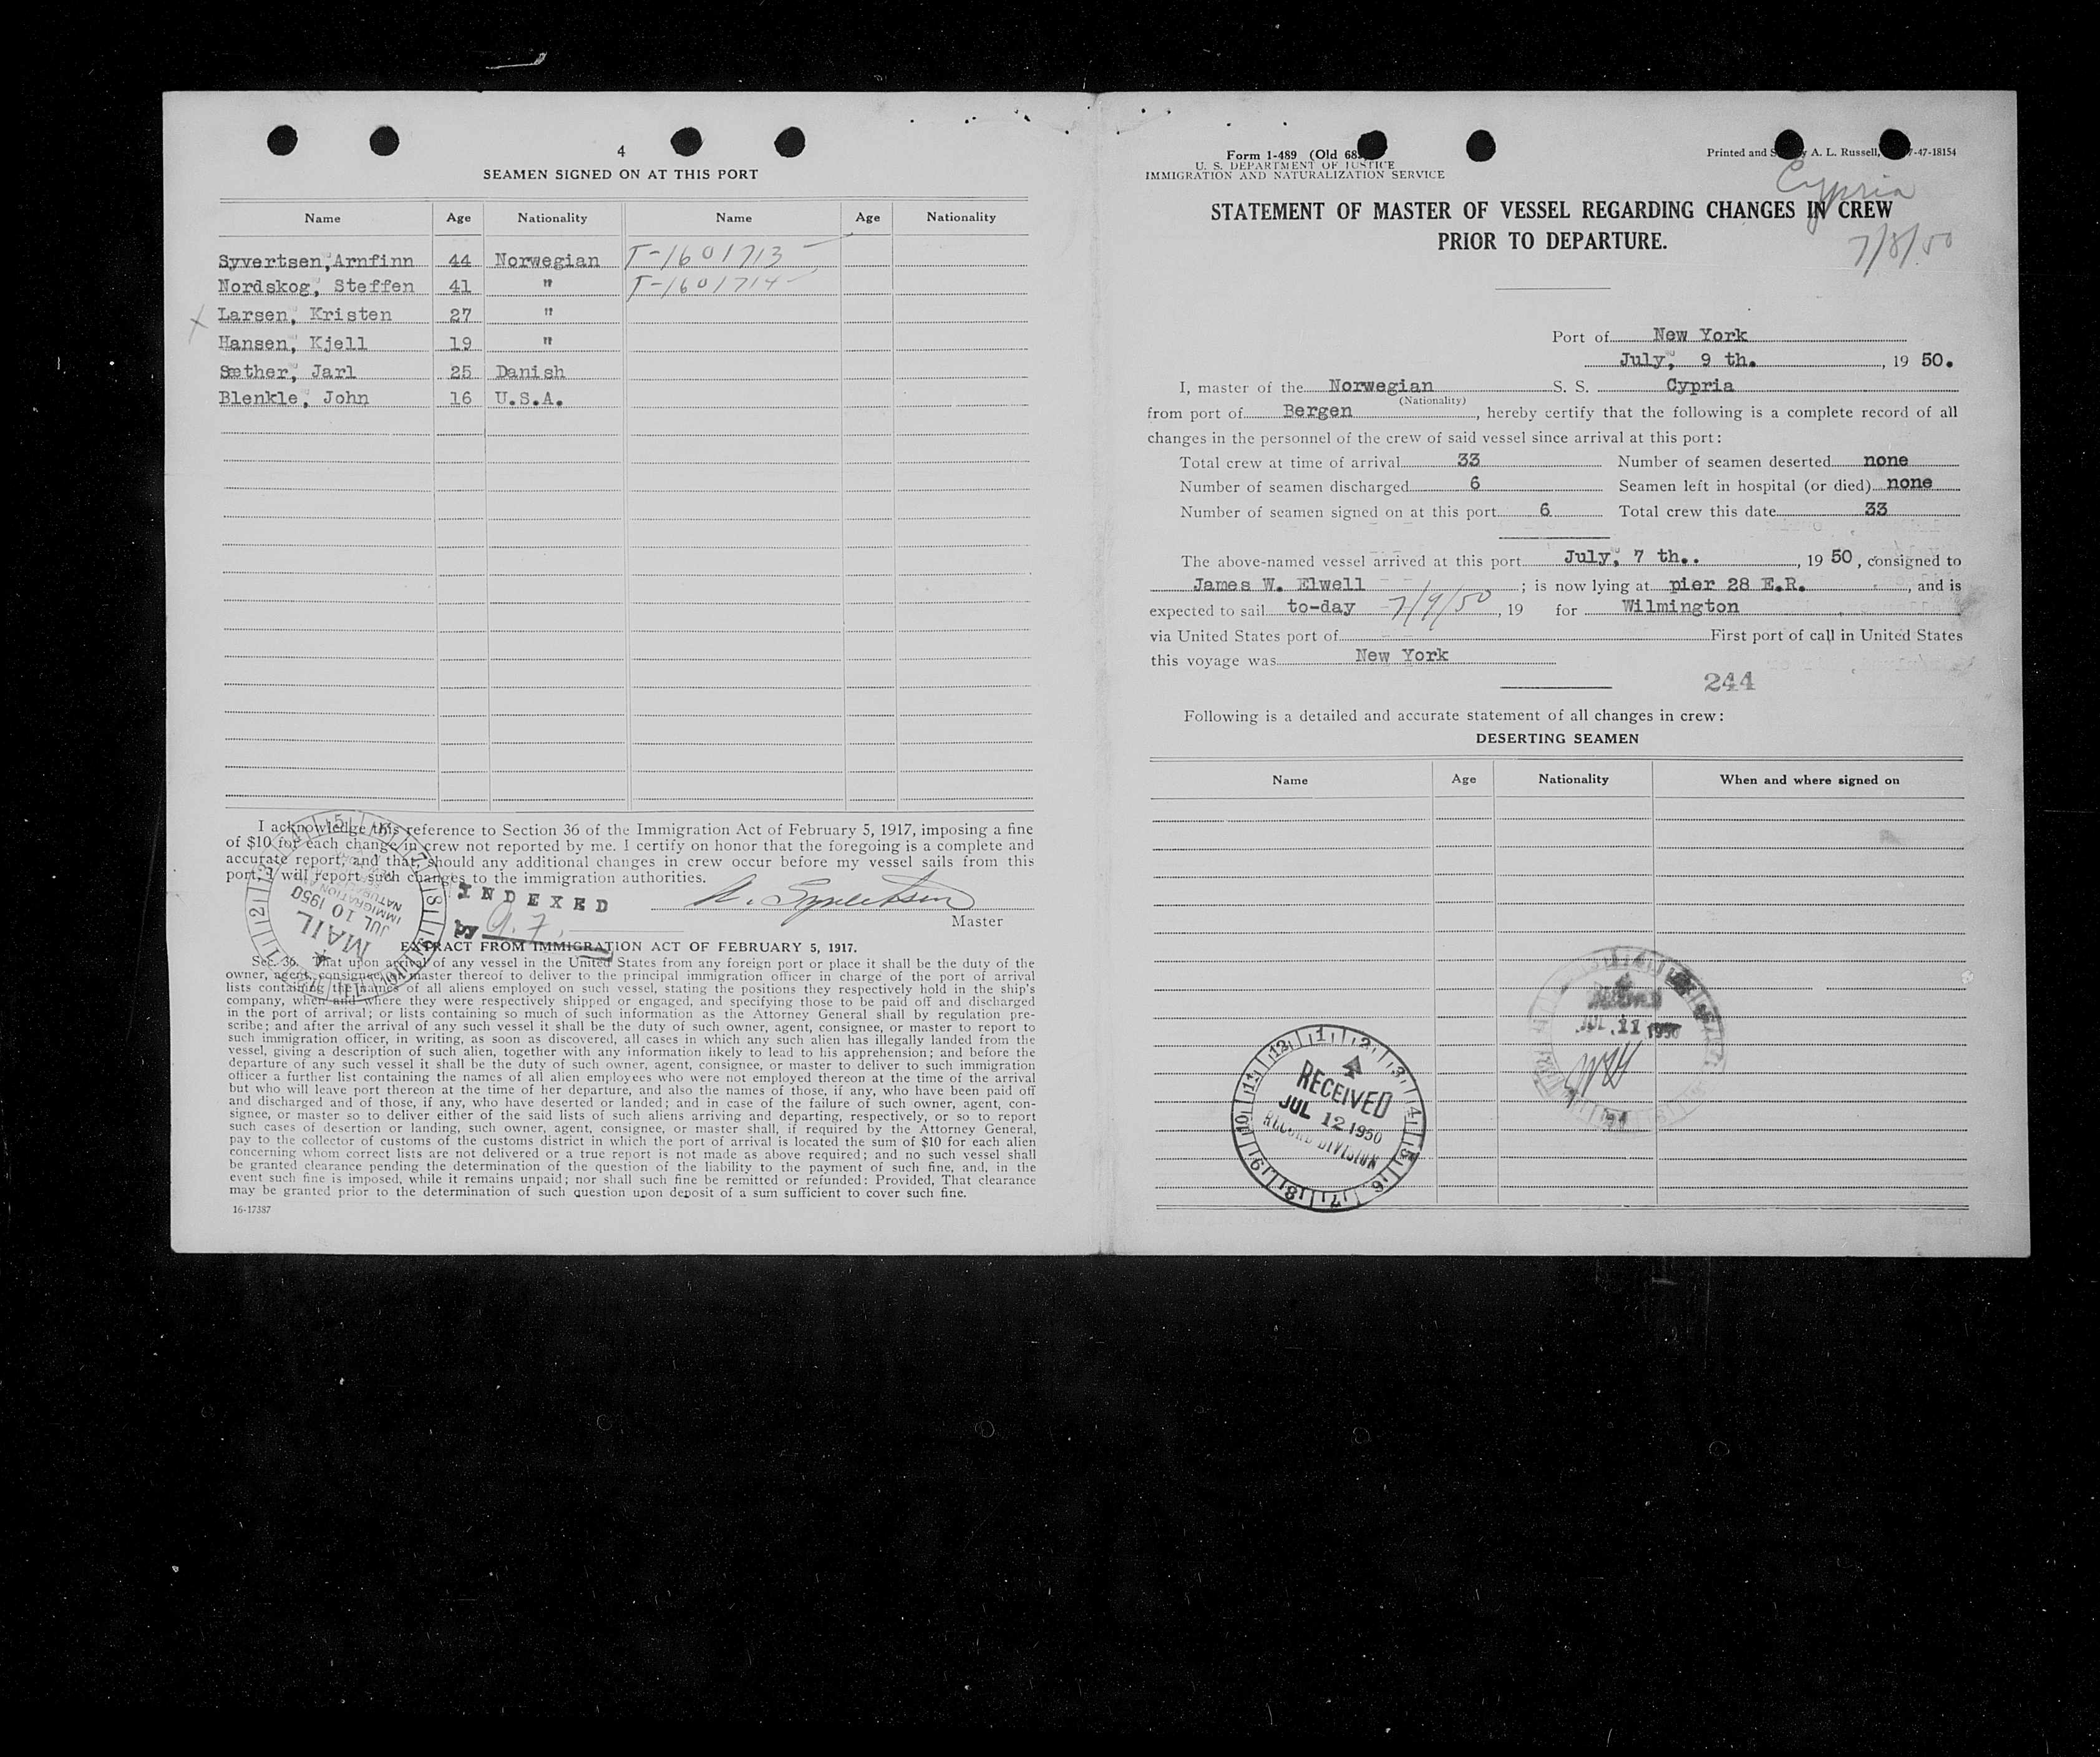 4
SEAMEN SIGNED ON AT THIS PORT
Name Age Nationality Name Age Nationality
Syvertsen, Arnfinn 44 Norwegian T-1601713
Nordskog, Steffen 41 " T-1601714
X Larsen, Kristen 27 "
Hansen, Kjell 19 "
Sæther, Jarl 25 Danish
Blenkle, John 16 U.S.A.
I acknowledge this reference to Section 36 of the Immigration Act of February 5, 1917, imposing a fine
of $10 for each change in crew not reported by me. I certify on honor that the foregoing is a complete and
accurate report, and that, should any additional changes in crew occur before my vessel sails from this
port, I will report such changes to the immigration authorities.
MAIL
JUL 10 1950
INDEXED
by
A. Syvertsen
Master
EXTRACT FROM IMMIGRATION ACT OF FEBRUARY 5, 1917.
Sec. 36. That upon arrival of any vessel in the United States from any foreign port or place it shall be the duty of the
owner, agent, consignee, or master thereof to deliver to the principal immigration officer in charge of the port of arrival
lists containing the names of all aliens employed on such vessel, stating the positions they respectively hold in the ship's
company, when and where they were respectively shipped or engaged, and specifying those to be paid off and discharged
in the port of arrival; or lists containing so much of such information as the Attorney General shall by regulation pre-
scribe; and after the arrival of any such vessel it shall be the duty of such owner, agent, consignee, or master to report to
such immigration officer, in writing, as soon as discovered, all cases in which any such alien has illegally landed from the
vessel, giving a description of such alien, together with any information likely to lead to his apprehension; and before the
departure of any such vessel it shall be the duty of such owner, agent, consignee, or master to deliver to such immigration
officer a further list containing the names of all alien employees who were not employed thereon at the time of the arrival
but who will leave port thereon at the time of her departure, and also the names of those, if any, who have been paid off
and discharged and of those, if any, who have deserted or landed; and in case of the failure of such owner, agent, con-
signee, or master so to deliver either of the said lists of such aliens arriving and departing, respectively, or so to report
such cases of desertion or landing, such owner, agent, consignee, or master shall, if required by the Attorney General,
pay to the collector of customs of the customs district in which the port of arrival is located the sum of $10 for each alien
concerning whom correct lists are not delivered or a true report is not made as above required; and no such vessel shall
be granted clearance pending the determination of the question of the liability to the payment of such fine, and, in the
event such fine is imposed, while it remains unpaid; nor shall such fine be remitted or refunded: Provided, That clearance
may be granted prior to the determination of such question upon deposit of a sum sufficient to cover such fine.
16-17387
Form 1-489 (Old 68
U. S. DEPARTMENT OF JUSTICE
IMMIGRATION AND NATURALIZATION SERVICE
Printed and S y A. L. Russell, 7-47-18154
Cypria
7/8/50
STATEMENT OF MASTER OF VESSEL REGARDING CHANGES IN CREW
PRIOR TO DEPARTURE.
Port of New York
July, 9 th. , 19 50.
I, master of the Norwegian S. S. Cypria
(Nationality)
from port of Bergen , hereby certify that the following is a complete record of all
changes in the personnel of the crew of said vessel since arrival at this port:
Total crew at time of arrival 33 Number of seamen deserted none
Number of seamen discharged 6 Seamen left in hospital (or died) none
Number of seamen signed on at this port 6 Total crew this date 33
The above-named vessel arrived at this port July, 7 th.. , 19 50 , consigned to
James W. Elwell ; is now lying at pier 28 E.R. , and is
expected to sail to-day 7/9/50 , 19 for Wilmington
via United States port of First port of call in United States
this voyage was New York
244
Following is a detailed and accurate statement of all changes in crew:
DESERTING SEAMEN
Name Age Nationality When and where signed on
JUL 11 1950
RECEIVED
JUL 12 1950
RECORD DIVISION